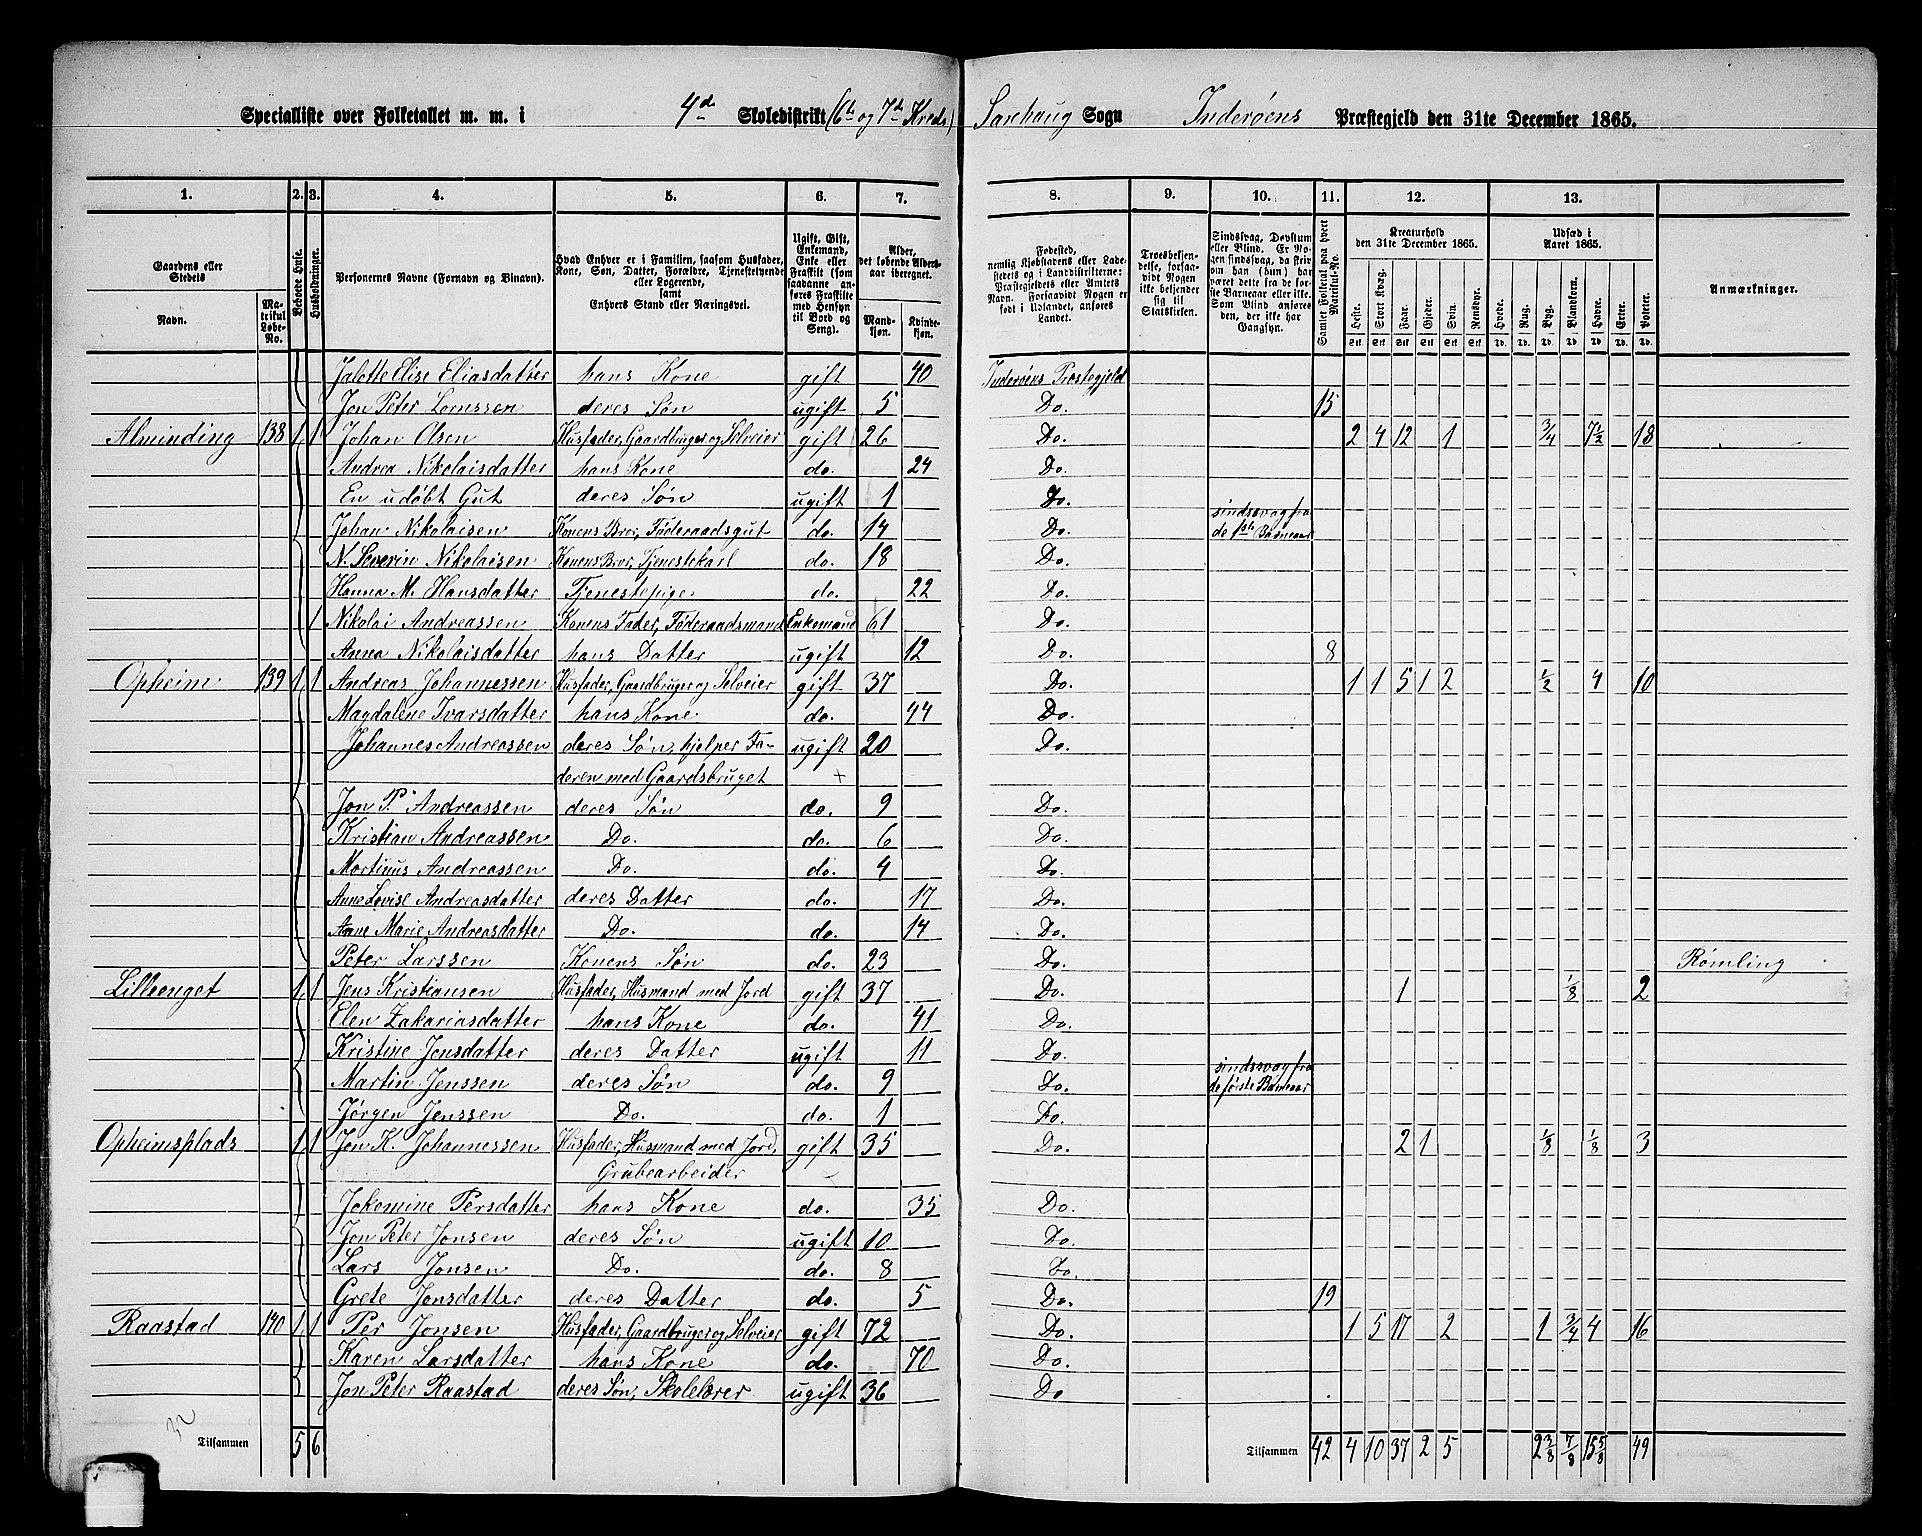 Specialliste over Folketallet m. m. i 4de Skoledistrikt (6te og 7de Kreds) Sarehaug Sogn Inderøens Præstegjeld den 31te December 1865.
1. 2. 3. 4. 5. 6. 7. 8. 9. 10. 11. 12. 13.
Gaardens eller Stedets
Navn. Matrikul Løbe-No.
Beboede Huse.
Husholdninger.
Personernes Navne (Fornavn og Binavn).
Hvad Enhver er i Familien, saasom Husfader, Kone, Søn, Datter, Forældre, Tjenestetyende eller Logerende, samt Enhvers Stand eller Næringsvei.
Ugift, Gift, Enkemand, Enke eller Fraskilt (som saadanne anføres Fraskilte med Hensyn til Bord og Seng).
Alder, det løbende Aldersaar iberegnet.
Mandkjøn. Kvindekjøn.
Fødested, nemlig Kjøbstadens eller Ladestedets og i Landdistrikterne: Præstegjeldets eller Amtets Navn. Forsaavidt Nogen er født i Udlandet, anføres Landet.
Troesbekjendelse, forsaavidt Nogen ikke bekjender sig til Statskirken.
Sindssvag, Døvstum eller Blind. Er Nogen sindssvag, da skriv om han (hun) har været dette fra de første Barneaar eller ikke. Som Blind anføres den, der ikke har Gangsyn.
Samlet Folketal paa hvert Matrikul-No.
Kreaturhold den 31te December 1865.
Heste. Stort Kvæg. Faar. Gjeder. Svin. Rensdyr.
Udsæd i Aaret 1865.
Hvede. Rug. Byg. Blandkorn. Havre. Erter. Poteter.
Anmærkninger.
Jalette Elise Eliasdatter hans Kone gift 40 Inderøens Præstegjeld
Jon Peter Lornssen deres Søn ugift 5 Do. 15
Alminding 138 1 1 Johan Olsen Husfader, Gaardbruger og Selveier gift 26 Do. 2 4 12 1 3/4 7 1/2 18
Andrea Nikolaisdatter hans Kone do. 24 Do.
En udøbt Gut deres Søn ugift 1 Do.
Johan Nikolaisen Konens Bror, Føderaadsgut do. 14 Do. sindssvag fra de 1ste Barneaar
N. Severin Nikolaisen Konens Bror, Tjenestekarl do. 18 Do.
Hanna M. Hansdatter Tjenestepige do. 22 Do.
1 Nikolai Andreassen Konens Fader, Føderaadsmand Enkemand 61 Do.
Anna Nikolaisdatter hans Datter ugift 12 Do. 8
Opheim 139 1 1 Andreas Johannessen Husfader, Gaardbruger og Selveier gift 37 Do. 1 1 5 1 2 1/2 4 10
Magdalene Ivarsdatter hans Kone do. 44 Do.
Johannes Andreassen deres Søn, hjelper Fa- ugift 20 Do.
deren med Gaardsbruget +
Jon P. Andreassen deres Søn do. 9 Do.
Kristian Andreassen Do. do. 6 Do.
Martinus Andreassen Do. do. 4 Do.
Anne Lovise Andreasdatter deres Datter do. 17 Do.
Anne Marie Andreasdatter Do. do. 14 Do.
Peter Larssen Konens Søn do. 23 Do. Rømling
Lilleenget 1 1 Jens Kristiansen Husfader, Husmand med Jord gift 37 Do. 1 1/8 2
Elen Zakariasdatter hans Kone do. 41 Do.
Kristine Jensdatter deres Datter ugift 11 Do.
Martin Jenssen deres Søn do. 9 Do. sindssvag fra de første Barneaar
Jørgen Jenssen Do. do. 1 Do.
Opheimsplads 1 1 Jon K. Johannessen Husfader, Husmand med Jord, gift 35 Do. 2 1 1/8 1/8 3
Grubearbeider
Jokomine Persdatter hans Kone do. 35 Do.
Jon Peter Jonsen deres Søn ugift 10 Do.
Lars Jonsen Do. do. 8 Do.
Grete Jonsdatter deres Datter do. 5 Do. 19
Raastad 140 1 1 Per Jonsen Husfader, Gaardbruger og Selveier gift 72 Do. 1 5 17 2 1 3/4 4 16
Karen Larsdatter hans Kone do. 70 Do.
Jon Peter Raastad deres Søn, Skolelærer ugift 36 Do
32
Tilsammen 5 6 Tilsammen 42 4 10 37 2 5 2 3/8 7/8 15 5/8 49